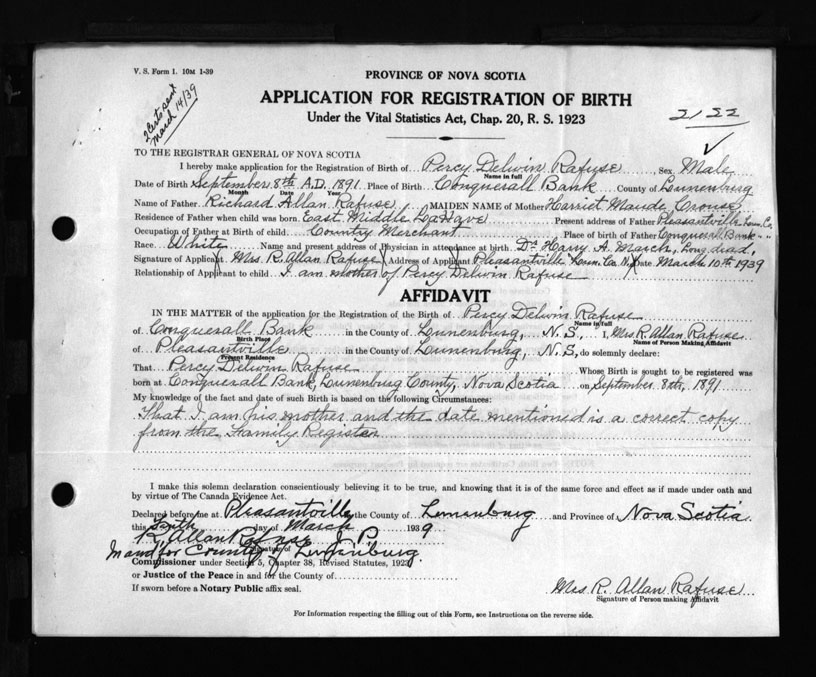 V. S. Form 1. 10M 1-39
2 Certs sent
March 14/39
PROVINCE OF NOVA SCOTIA
APPLICATION FOR REGISTRATION OF BIRTH
Under the Vital Statistics Act, Chap. 20, R. S. 1923
TO THE REGISTRAR GENERAL OF NOVA SCOTIA
I hereby make application for the Registration of Birth of Percy Delwin Rafuse Sex Male
Name in full
Date of Birth September 8th A.D. 1891 Place of Birth Conquerall Bank County of Lunenburg
Month Date Year
Name of Father Richard Allan Rafuse MAIDEN NAME of Mother Harriet Maude Crouse
Residence of Father when child was born East Middle LaHave Present address of Father Pleasantville Lun. Co.
Occupation of Father at Birth of child Country Merchant Place of birth of Father Conquerall Bank " "
Race White Name and present address of Physician in attendance at birth Dr. Harry A. March, Long dead,
Signature of Applicant Mrs. R. Allan Rafuse Address of Applicant Pleasantville Lun. Co. N.S. Date March 10th 1939
Relationship of Applicant to child I am mother of Percy Delwin Rafuse
AFFIDAVIT
IN THE MATTER of the application for Registration of the Birth of Percy Delwin Rafuse
Name in full
of Conquerall Bank in the County of Lunenburg, N.S., I, Mrs R. Allan Rafuse
Birth Place Name of Person Making Affidavit
of Pleasantville in the County of Lunenburg, N.S, do solemnly declare:
Present Residence
That Percy Delwin Rafuse Whose Birth is sought to be registered was
born at Conquerall Bank, Lunenburg County, Nova Scotia on September 8th, 1891
My knowledge of the fact and date of such Birth is based on the following Circumstances:
That I am his mother and the date mentioned is a correct copy
from the Family Register
I make this solemn declaration conscientiously believing it to be true, and knowing that it is of the same force and effect as if made under oath and
by virtue of The Canada Evidence Act.
Declared before me at Pleasantville the County of Lunenburg and Province of Nova Scotia
this day of March 1939
R Allan Rafuse J. P.
Signature of
In and for County of Lunenburg.
Commissioner under Section 5, Chapter 38, Revised Statutes, 1923
or Justice of the Peace in and for the County of
If sworn before a Notary Public affix seal.
Mrs R. Allan Rafuse
Signature of Person making Affidavit
For Information respecting the filling out of this Form, see Instructions on the reverse side.